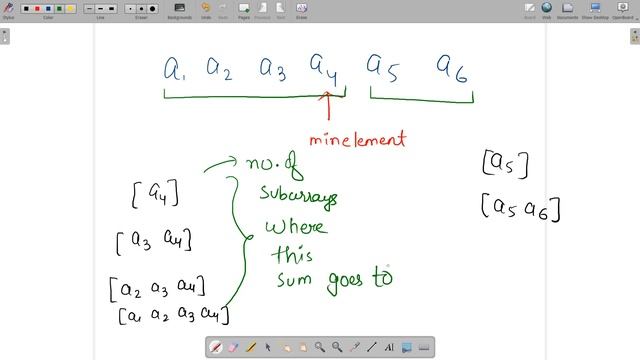 Stylus Color Line Stylus Eraser Backgrounds Undo Redo Pages Previous Next Erase Board Web Documents Show Desktop OpenBoard
a1 a2 a3 a4 a5 a6
min element
no. of
subarrays
where
this
sum goes to
[a4]
[a3 a4]
[a2 a3 a4]
[a1 a2 a3 a4]
[a5]
[a5 a6]